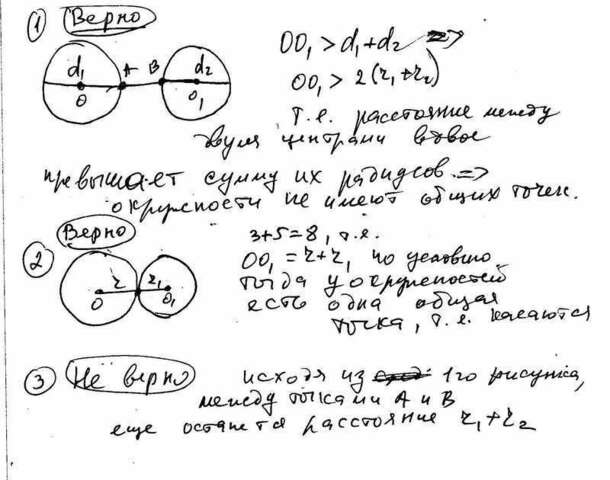 1 Верно
d₁ A B d₂
O O₁
OO₁ > d₁+d₂ =>
OO₁ > 2(r₁+r₂)
т.е. расстояние между
двумя центрами вдвое
превышает сумму их радиусов. =>
окружности не имеют общих точек.
2 Верно
r r₁
O O₁
3+5=8, т.е.
OO₁ = r+r₁ по условию
тогда у окружностей
есть одна общая
точка, т.е. касаются
3 Не верно
исходя из 1го рисунка,
между точками A и B
еще останется расстояние r₁+r₂